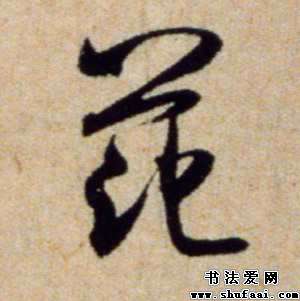 范
书法爱网
www.shufaai.com